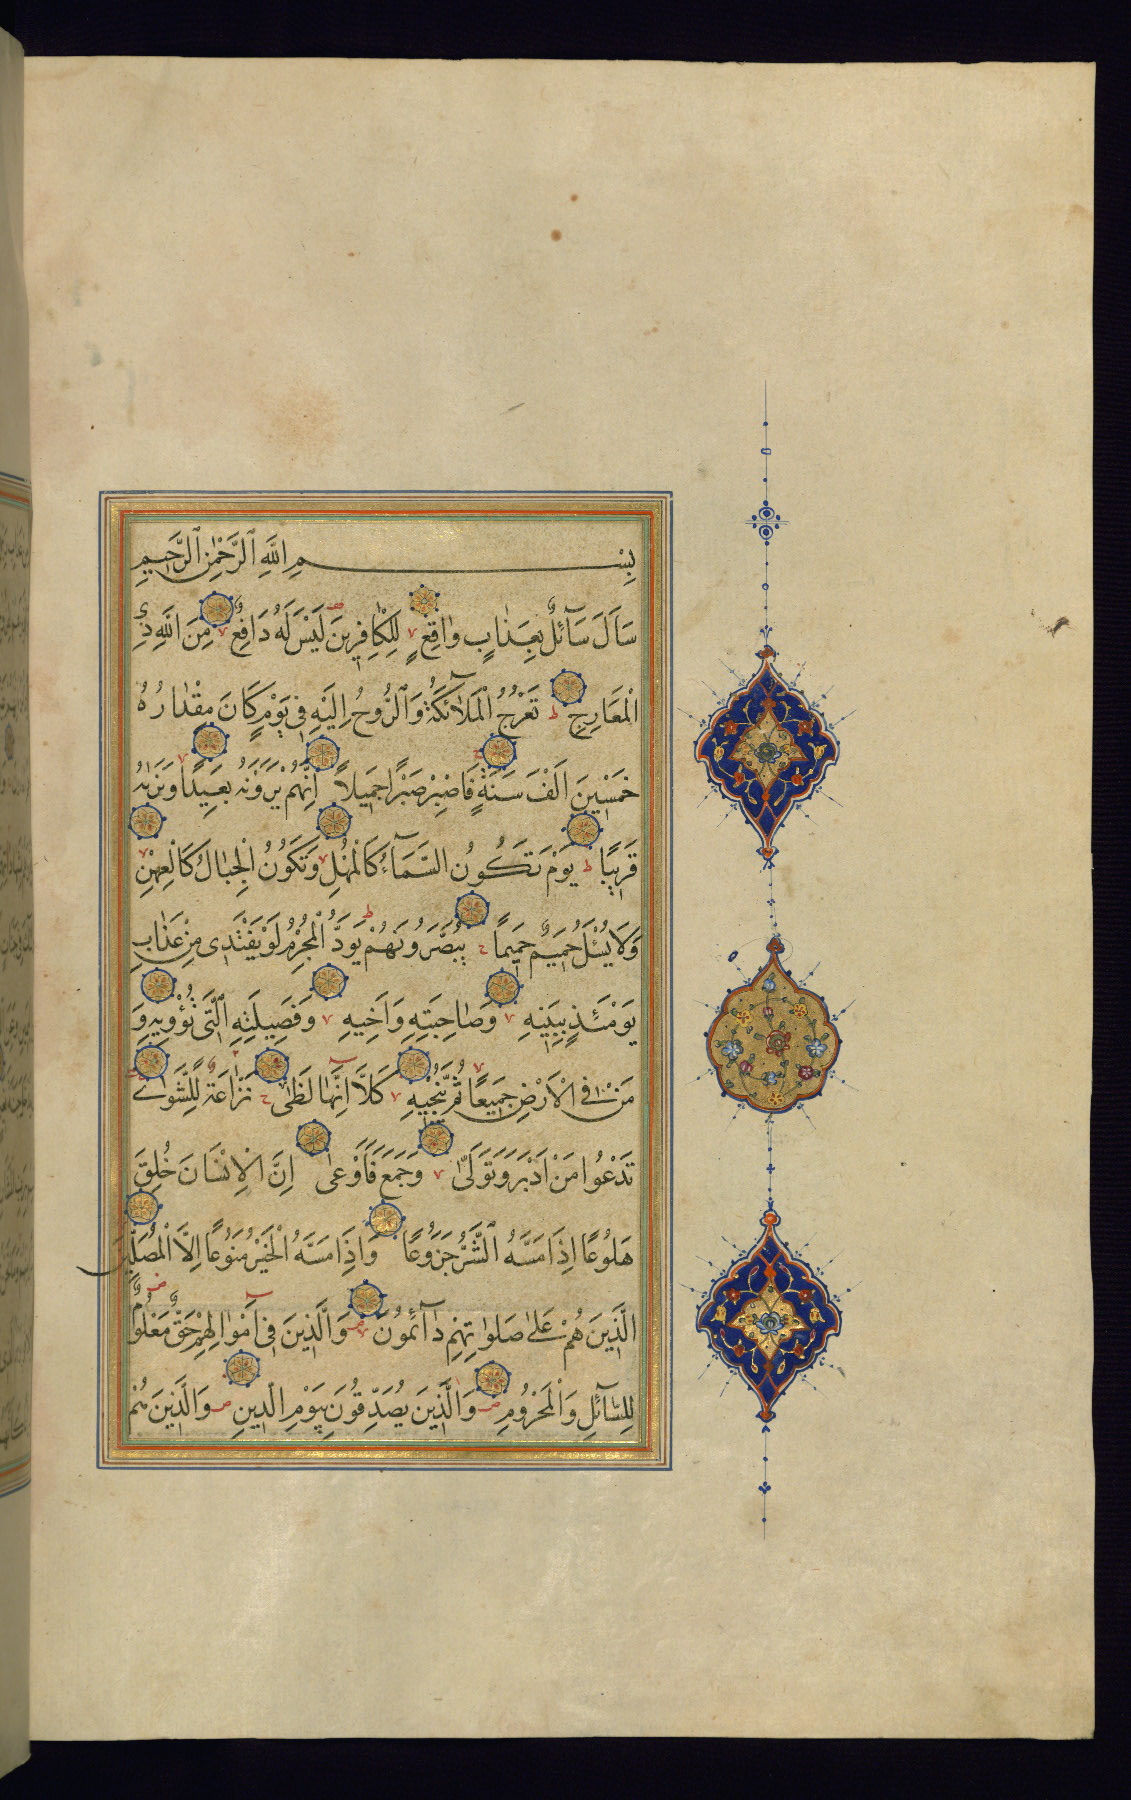 بِسْمِ اللَّهِ الرَّحْمٰنِ الرَّحِيمِ
سَاَلَ سَآئِلٌ بِعَذٰابٍ وٰاقِعٍ لِلْكٰافِرِينَ لَيْسَ لَهُ دَافِعٌ مِنَ اللَّهِ ذِى
الْمَعَارِجِ تَعْرُجُ الْمَلٰآئِكَةُ وَالرُّوحُ اِلَيْهِ فِى يَوْمٍ كَانَ مِقْدٰارُهُ
خَمْسِينَ اَلْفَ سَنَةٍ فَاصْبِرْ صَبْرًا جَمِيلاً اِنَّهُمْ يَرَوْنَهُ بَعِيدًا وَنَرٰيهُ
قَرِيبًا يَوْمَ تَكُونُ السَّمَآءُ كَالْمُهْلِ وَتَكُونُ الْجِبٰالُ كَالْعِهْنِ
وَلَا يُسْئَلُ حَمِيمٌ حَمِيمًا يُبَصَّرُونَهُمْ يَوَدُّ الْمُجْرِمُ لَوْ يَفْتَدِى مِنْ عَذٰابِ
يَوْمَئِذٍ بِبَنِيهِ وَصٰاحِبَتِهِ وَاَخِيهِ وَفَصِيلَتِهِ الَّتِى تُؤْوِيهِ وَ
مَنْ فِى الْاَرْضِ جَمِيعًا ثُمَّ يُنْجِيهِ كَلَّا اِنَّهٰا لَظٰى نَزّٰاعَةً لِلشَّوٰى
تَدْعُوا مَنْ اَدْبَرَ وَتَوَلّٰى وَجَمَعَ فَاَوْعٰى اِنَّ الْاِنْسَانَ خُلِقَ
هَلُوعًا اِذَا مَسَّهُ الشَّرُّ جَزُوعًا وَاِذَا مَسَّهُ الْخَيْرُ مَنُوعًا اِلَّا الْمُصَلِّينَ
الَّذِينَ هُمْ عَلٰى صَلوٰاتِهِمْ دٰآئِمُونَ وَالَّذِينَ فِى اَمْوٰالِهِمْ حَقٌّ مَعْلُومٌ
لِلسّٰآئِلِ وَالْمَحْرُومِ وَالَّذِينَ يُصَدِّقُونَ بِيَوْمِ الدِّينِ وَالَّذِينَ هُمْ